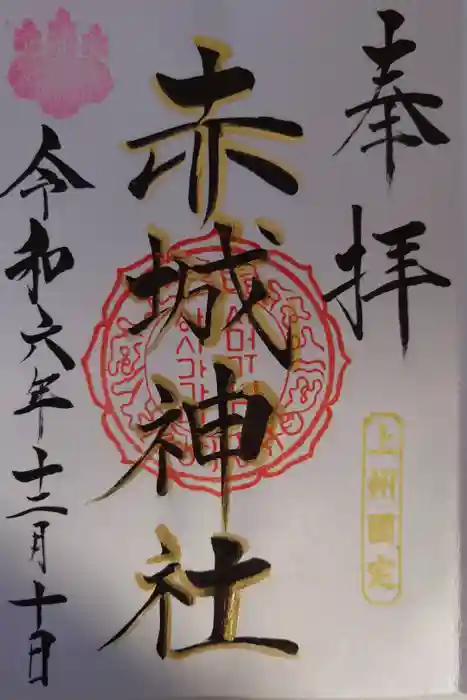 奉拝
上州国定
赤城神社
令和六年十二月十日